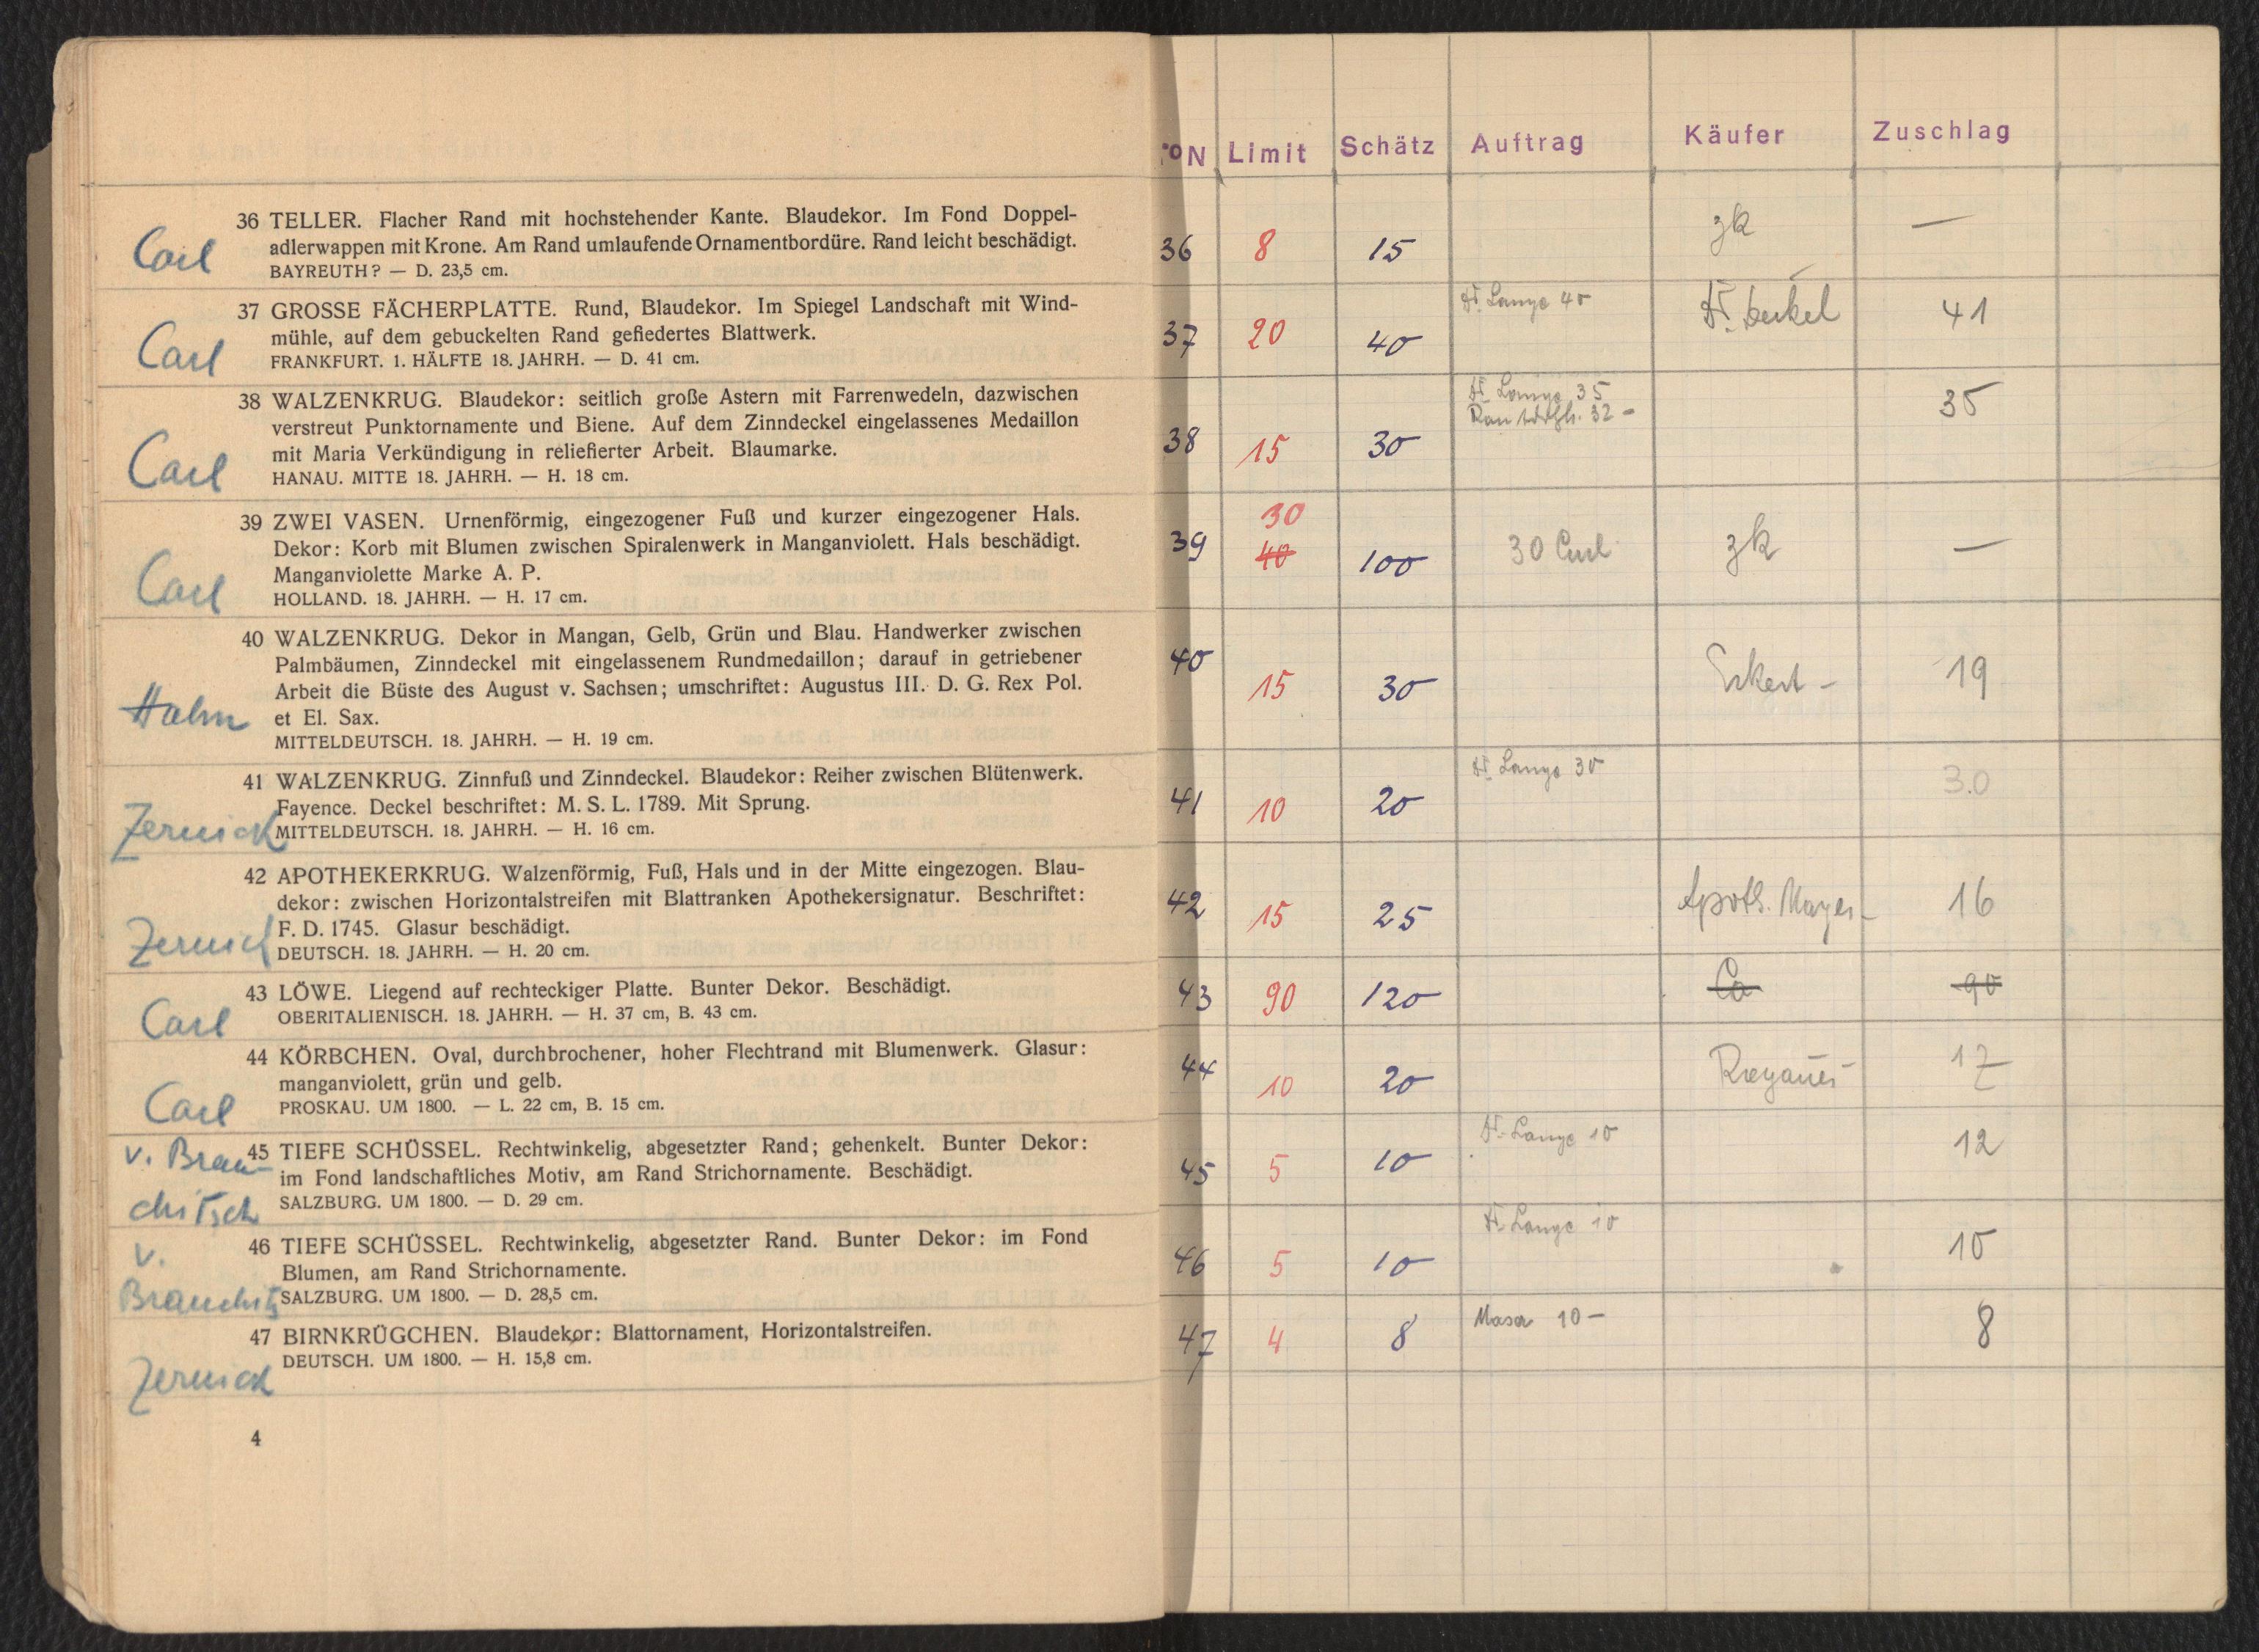 36 TELLER. Flacher Rand mit hochstehender Kante. Blaudekor. Im Fond Doppel-
adlerwappen mit Krone. Am Rand umlaufende Ornamentbordüre. Rand leicht beschädigt.
BAYREUTH? — D. 23,5 cm.
Carl
37 GROSSE FÄCHERPLATTE. Rund, Blaudekor. Im Spiegel Landschaft mit Wind-
mühle, auf dem gebuckelten Rand gefiedertes Blattwerk.
FRANKFURT. 1. HÄLFTE 18. JAHRH. — D. 41 cm.
Carl
38 WALZENKRUG. Blaudekor: seitlich große Astern mit Farrenwedeln, dazwischen
verstreut Punktornamente und Biene. Auf dem Zinndeckel eingelassenes Medaillon
mit Maria Verkündigung in reliefierter Arbeit. Blaumarke.
HANAU. MITTE 18. JAHRH. — H. 18 cm.
Carl
39 ZWEI VASEN. Urnenförmig, eingezogener Fuß und kurzer eingezogener Hals.
Dekor: Korb mit Blumen zwischen Spiralenwerk in Manganviolett. Hals beschädigt.
Manganviolette Marke A. P.
HOLLAND. 18. JAHRH. — H. 17 cm.
Carl
40 WALZENKRUG. Dekor in Mangan, Gelb, Grün und Blau. Handwerker zwischen
Palmbäumen, Zinndeckel mit eingelassenem Rundmedaillon; darauf in getriebener
Arbeit die Büste des August v. Sachsen; umschriftet: Augustus III. D. G. Rex Pol.
et El. Sax.
MITTELDEUTSCH. 18. JAHRH. — H. 19 cm.
Hahn
41 WALZENKRUG. Zinnfuß und Zinndeckel. Blaudekor: Reiher zwischen Blütenwerk.
Fayence. Deckel beschriftet: M. S. L. 1789. Mit Sprung.
MITTELDEUTSCH. 18. JAHRH. — H. 16 cm.
Zernick
42 APOTHEKERKRUG. Walzenförmig, Fuß, Hals und in der Mitte eingezogen. Blau-
dekor: zwischen Horizontalstreifen mit Blattranken Apothekersignatur. Beschriftet:
F. D. 1745. Glasur beschädigt.
DEUTSCH. 18. JAHRH. — H. 20 cm.
Zernick
43 LÖWE. Liegend auf rechteckiger Platte. Bunter Dekor. Beschädigt.
OBERITALIENISCH. 18. JAHRH. — H. 37 cm, B. 43 cm.
Carl
44 KÖRBCHEN. Oval, durchbrochener, hoher Flechtrand mit Blumenwerk. Glasur:
manganviolett, grün und gelb.
PROSKAU. UM 1800. — L. 22 cm, B. 15 cm.
Carl
45 TIEFE SCHÜSSEL. Rechtwinkelig, abgesetzter Rand; gehenkelt. Bunter Dekor:
im Fond landschaftliches Motiv, am Rand Strichornamente. Beschädigt.
SALZBURG. UM 1800. — D. 29 cm.
v. Brau-
chitsch
46 TIEFE SCHÜSSEL. Rechtwinkelig, abgesetzter Rand. Bunter Dekor: im Fond
Blumen, am Rand Strichornamente.
SALZBURG. UM 1800. — D. 28,5 cm.
v.
47 BIRNKRÜGCHEN. Blaudekor: Blattornament, Horizontalstreifen.
DEUTSCH. UM 1800. — H. 15,8 cm.
Zernick
4
No Limit Schätz Auftrag Käufer Zuschlag
36 8 15 zk —
37 20 40 Dr. Lange 40 41
38 15 30 Dr. Lange 35 35
32 -
39 30 40 100 30 Carl zk —
40 15 30 Eckert - 19
41 10 20 Dr. Lange 30 30
42 15 25 Apoth. Mayer - 16
43 90 120 Ca 90
44 10 20 17
45 5 10 Dr. Lange 10 12
46 5 10 Dr. Lange 10 10
47 4 8 Maser 10 - 8